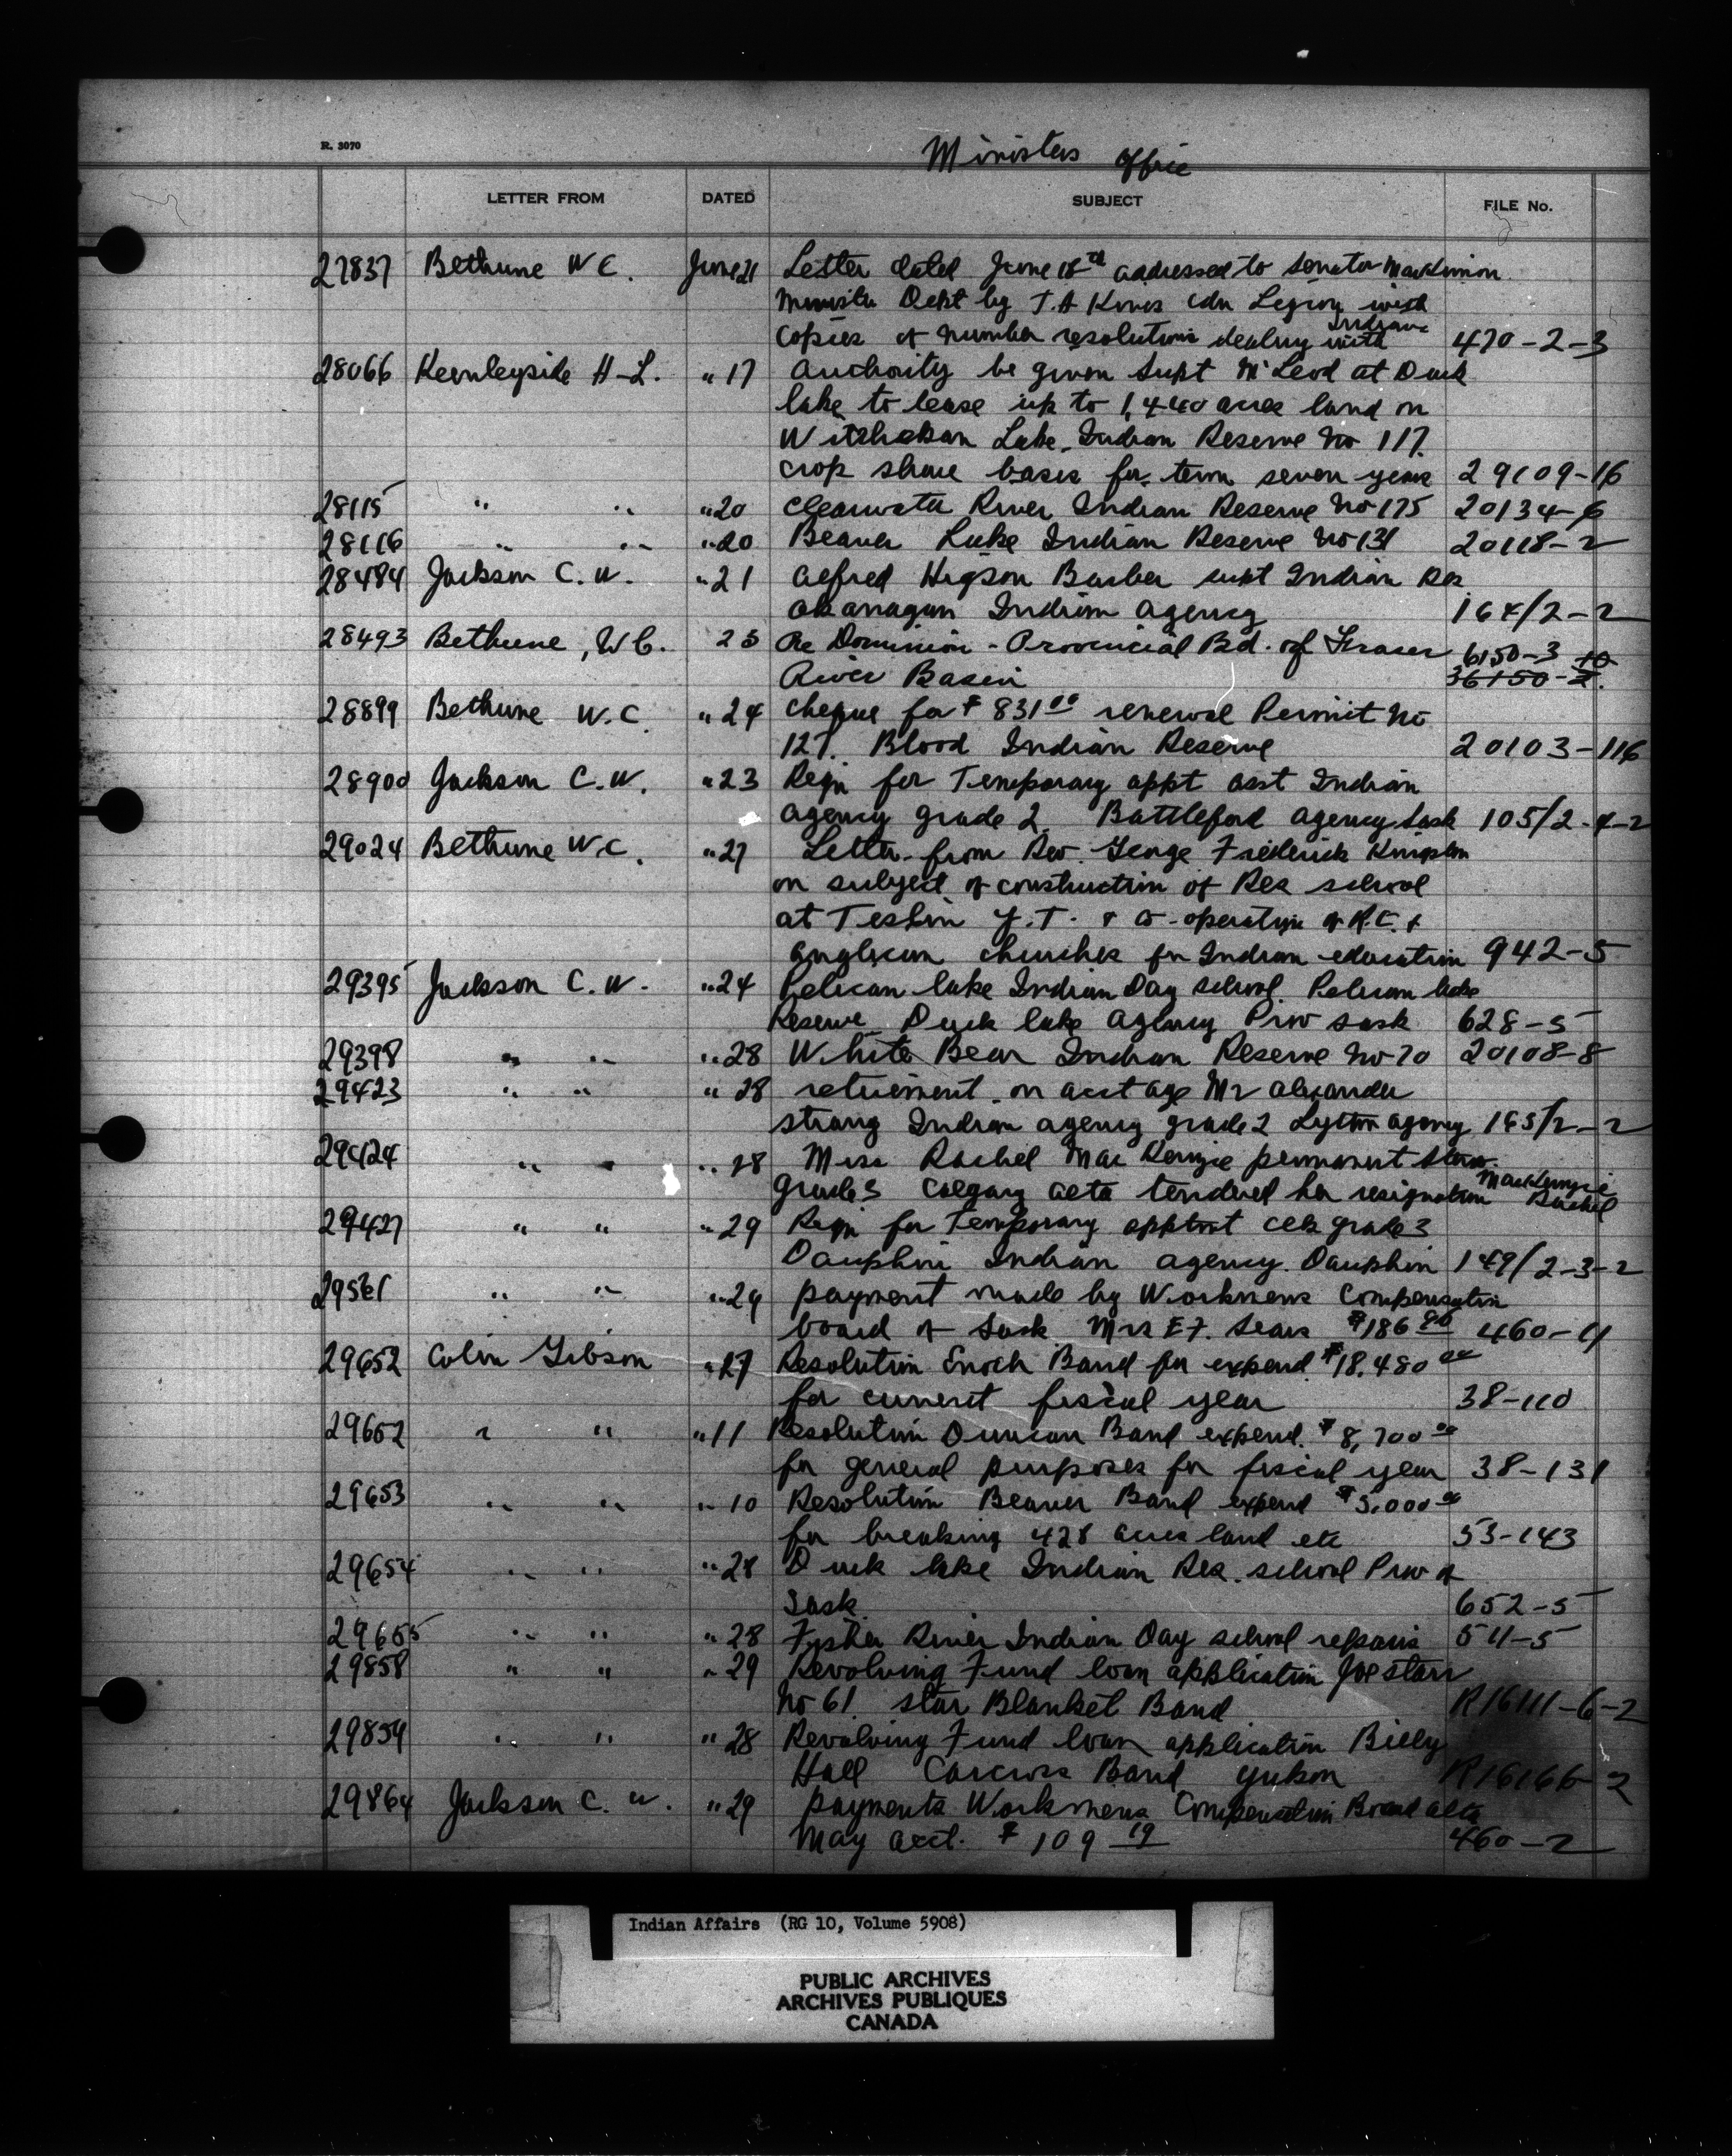 R. 3070
Ministers Office
LETTER FROM DATED SUBJECT FILE No.
27837 Bethune W C. June 21 Letter dated June 18th addressed to Senator MacKinnon
Dept by T. A Cdn Legion with
copies of number resolutions dealing with Indians 470-2-3
28066 Keenleyside H-L. " 17 authority be given Supt McLeod at Duck
lake to lease up to 1,440 acres land on
Witchekan Lake Indian Reserve No 117.
crop share basis for term seven years 29109-16
28115 " " " 20 Clearwater River Indian Reserve No 175 20134-6
28116 " " " 20 Beaver Lake Indian Reserve No 131 20118-2
28484 Jackson C. W. " 21 Alfred Higson Barber supt Indian Res
Okanagan Indian Agency 164/2-2
28493 Bethune, W C. 23 Re Dominion-Provincial Bd. of Fraser 6150-3
River Basin 36150-2.
28899 Bethune W. C " 24 cheque for $ 831 00 renewal Permit No
127. Blood Indian Reserve 20103-116
28900 Jackson C. W. " 23 Reqn for Temporary appt asst Indian
agency grade 2. Battleford agency Sask 105/2-4-2
29024 Bethune W. C. " 27 Letter from Rev. George Frederick
on subject of construction of Res school
at Teslin Y. T. & co-operation of R. C. &
anglican churches for Indian education 942-5
29395 Jackson C. W. " 24 Pelican lake Indian Day school. Pelican lake
Reserve Duck lake agency Prov Sask 628-5
29398 " " " 28 White Bear Indian Reserve No 70 20108-8
29423 " " " 28 retirement on acct age Mr Alexander
Strang Indian agency grade 2 Lytton agency 165/2-2
29424 " " " 28 Miss Rachel MacKenzie permanent Steno.
grade 3 Calgary Alta tendered her resignation MacKenzie Rachel
29427 " " " 29 Reqn for Temporary apptmt clk grade 3
Dauphin Indian agency. Dauphin 149/2-3-2
29561 " " " 29 payment made by Workmens Compensation
board of Sask Mrs E F. Sears $186 80 460-4
29652 Colin Gibson " 27 Resolution Enoch Band for expend. $18.480 00
for current fiscal year 38-110
29652 " " " 11 Resolution Duncan Band expend. $ 8,700 00
for general purposes for fiscal year 38-131
29653 " " " 10 Resolution Beaver Band expend $5,000 00
for breaking 428 acres land etc 53-143
29654 " " " 28 Duck lake Indian Res. school Prov of
Sask. 652-5
29655 " " " 28 Fisher River Indian Day school repairs 511-5
29858 " " " 29 Revolving Fund loan application Joe Starr
No 61. Star Blanket Band R16111-6-2
29859 " " " 28 Revolving Fund loan application Billy
Hall Carcross Band Yukon R16166-2
29864 Jackson C. W. " 29 payments Workmens Compensation Board Alta
May acct. $ 109 19 460-2
Indian Affairs (RG 10, Volume 5908)
PUBLIC ARCHIVES
ARCHIVES PUBLIQUES
CANADA